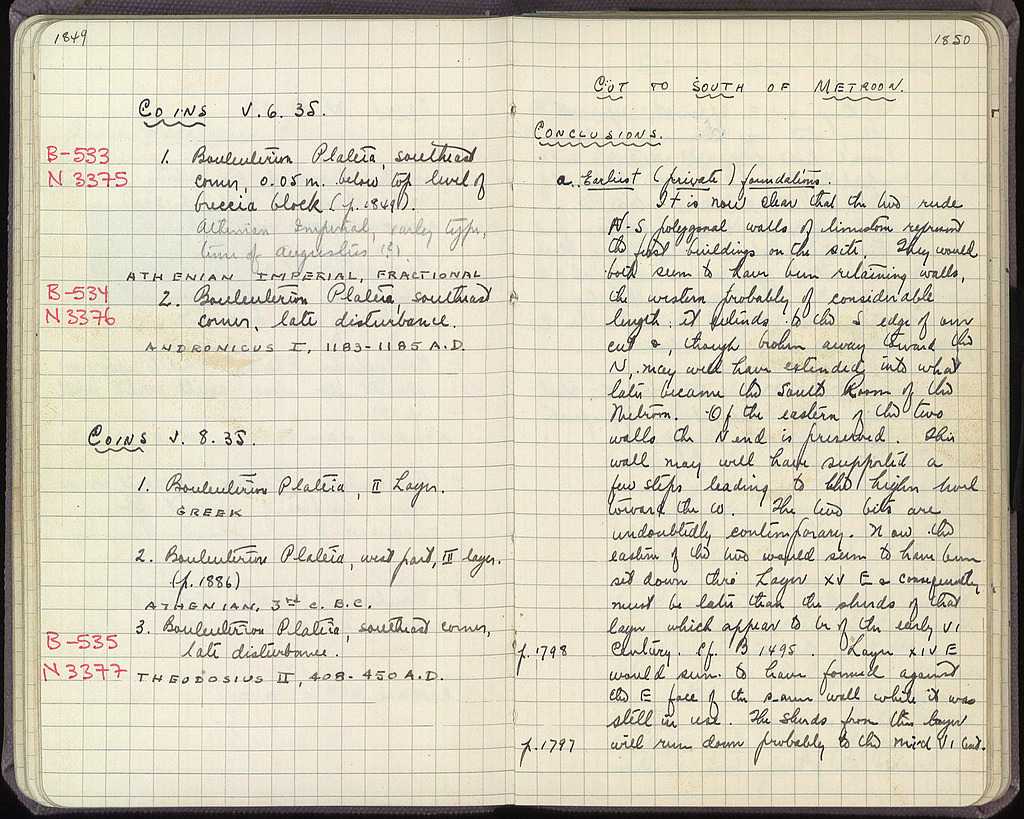 1849
COINS V. 6. 35.
B-533
N 3375
1. Bouleuterion Plateia, southeast
corner, 0.05 m. below top level of
breccia block (p. 1849).
Athenian Imperial, early type,
time of Augustus (?)
ATHENIAN IMPERIAL, FRACTIONAL
B-534
N 3376
2. Bouleuterion Plateia, southeast
corner, late disturbance.
ANDRONICUS I, 1183-1185 A.D.
COINS V. 8. 35.
1. Bouleuterion Plateia, II Layer.
GREEK
2. Bouleuterion Plateia, west part, III layer.
(p. 1886)
ATHENIAN, 3rd c. B.C.
B-535
N 3377
3. Bouleuterion Plateia, southeast corner,
late disturbance.
THEODOSIUS II, 408-450 A.D.
1850
CUT TO SOUTH OF METROON.
CONCLUSIONS.
a. Earliest (private) foundations.
It is now clear that the two rude
N-S polygonal walls of limestone represent
the first buildings on the site. They would
both seem to have been retaining walls,
the western probably of considerable
length; it extends to the S edge of our
cut &, though broken away toward the
N, may well have extended into what
later became the South Room of the
Metroon. Of the eastern of the two
walls the N end is preserved. This
wall may well have supported a
few steps leading to the higher level
toward the W. The two bits are
undoubtedly contemporary. Now the
eastern of the two would seem to have been
set down thro' Layer XV E & consequently
must be later than the sherds of that
layer which appear to be of the early VI
p. 1798
Century. Cf. B 1495. Layer XIV E
would seem to have formed against
the E face of the same wall while it was
still in use. The sherds from this layer
p. 1797
will run down probably to the mid VI cent.